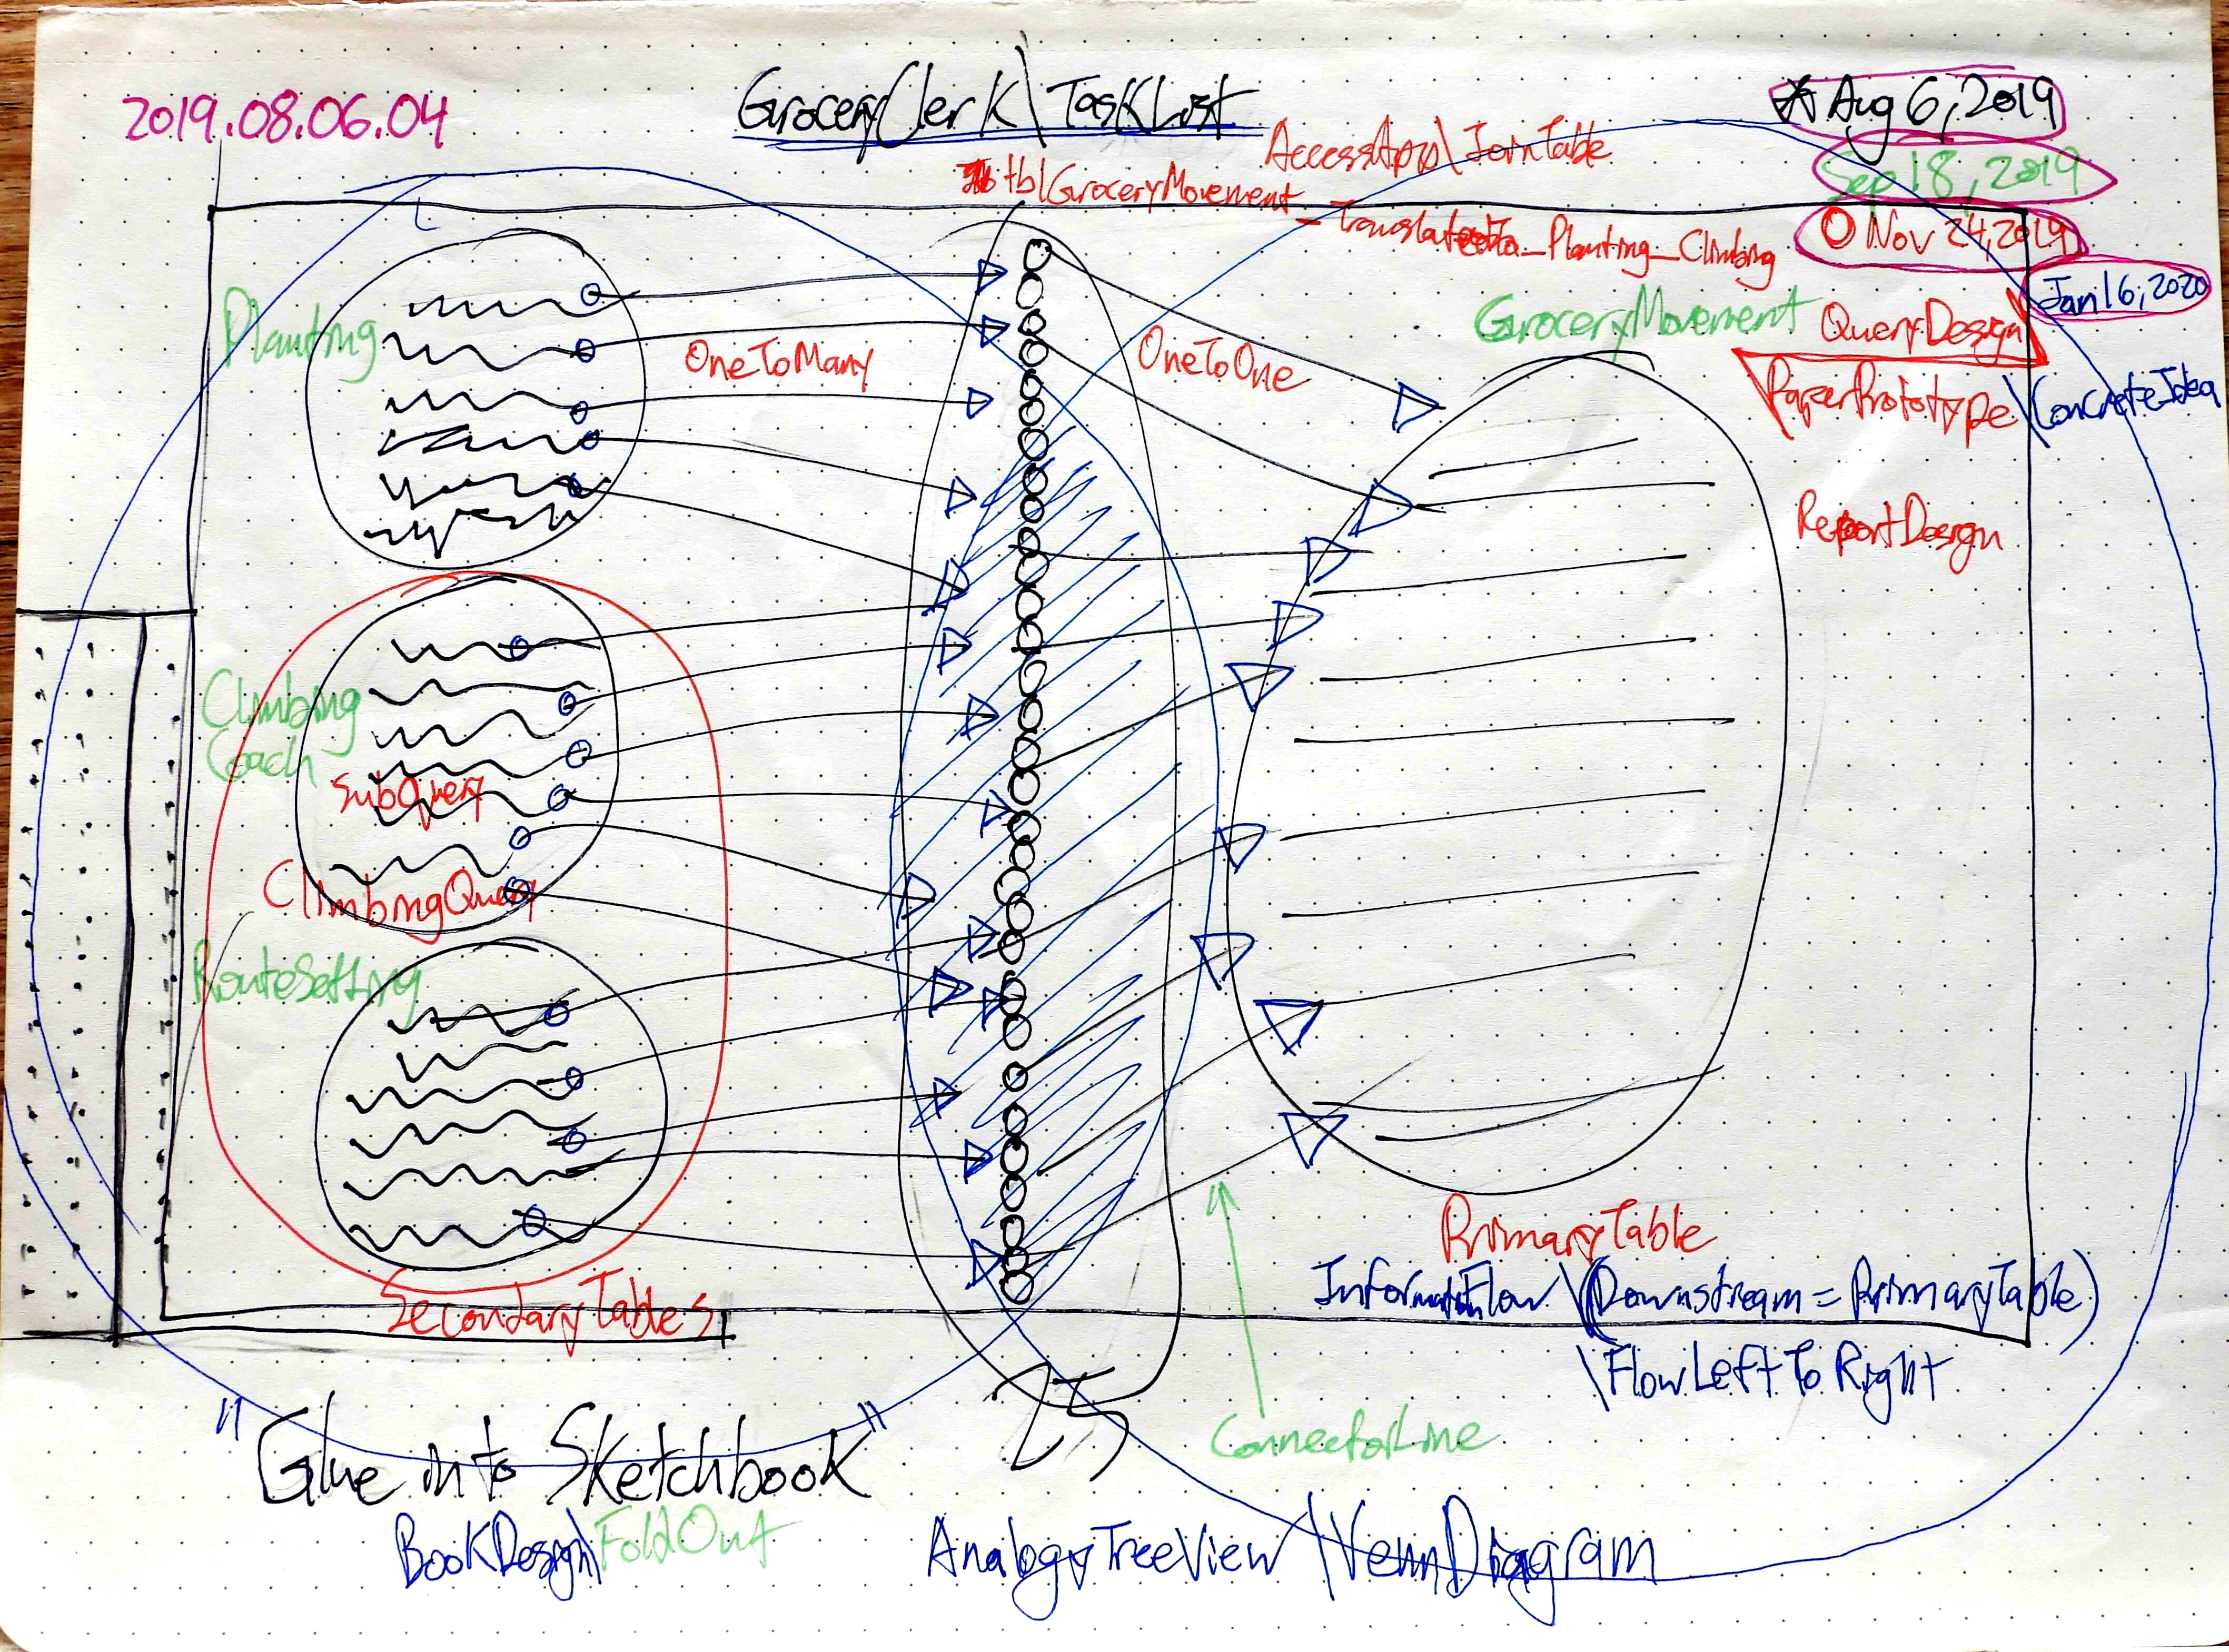 2019.08.06.04
GroceryClerk\TaskList
Aug 6, 2019
Sep 18, 2019
Nov 24, 2019
Jan 16, 2020
AccessApp\JoinTable
tblGroceryMovement
_Planting_Climbing
Planting
OneToMany
OneToOne
GroceryMovement
QueryDesign
\PaperPrototype\ConcreteIdea
ReportDesign
Climbing
Coach
SubQuery
ClimbingQuery
RouteSetting
SecondaryTables
PrimaryTable
InformationFlow\(Downstream = PrimaryTable)
\FlowLeftToRight
25
ConnectorLine
"Glue into Sketchbook"
BookDesign\FoldOut
AnalogyTreeView\VennDiagram